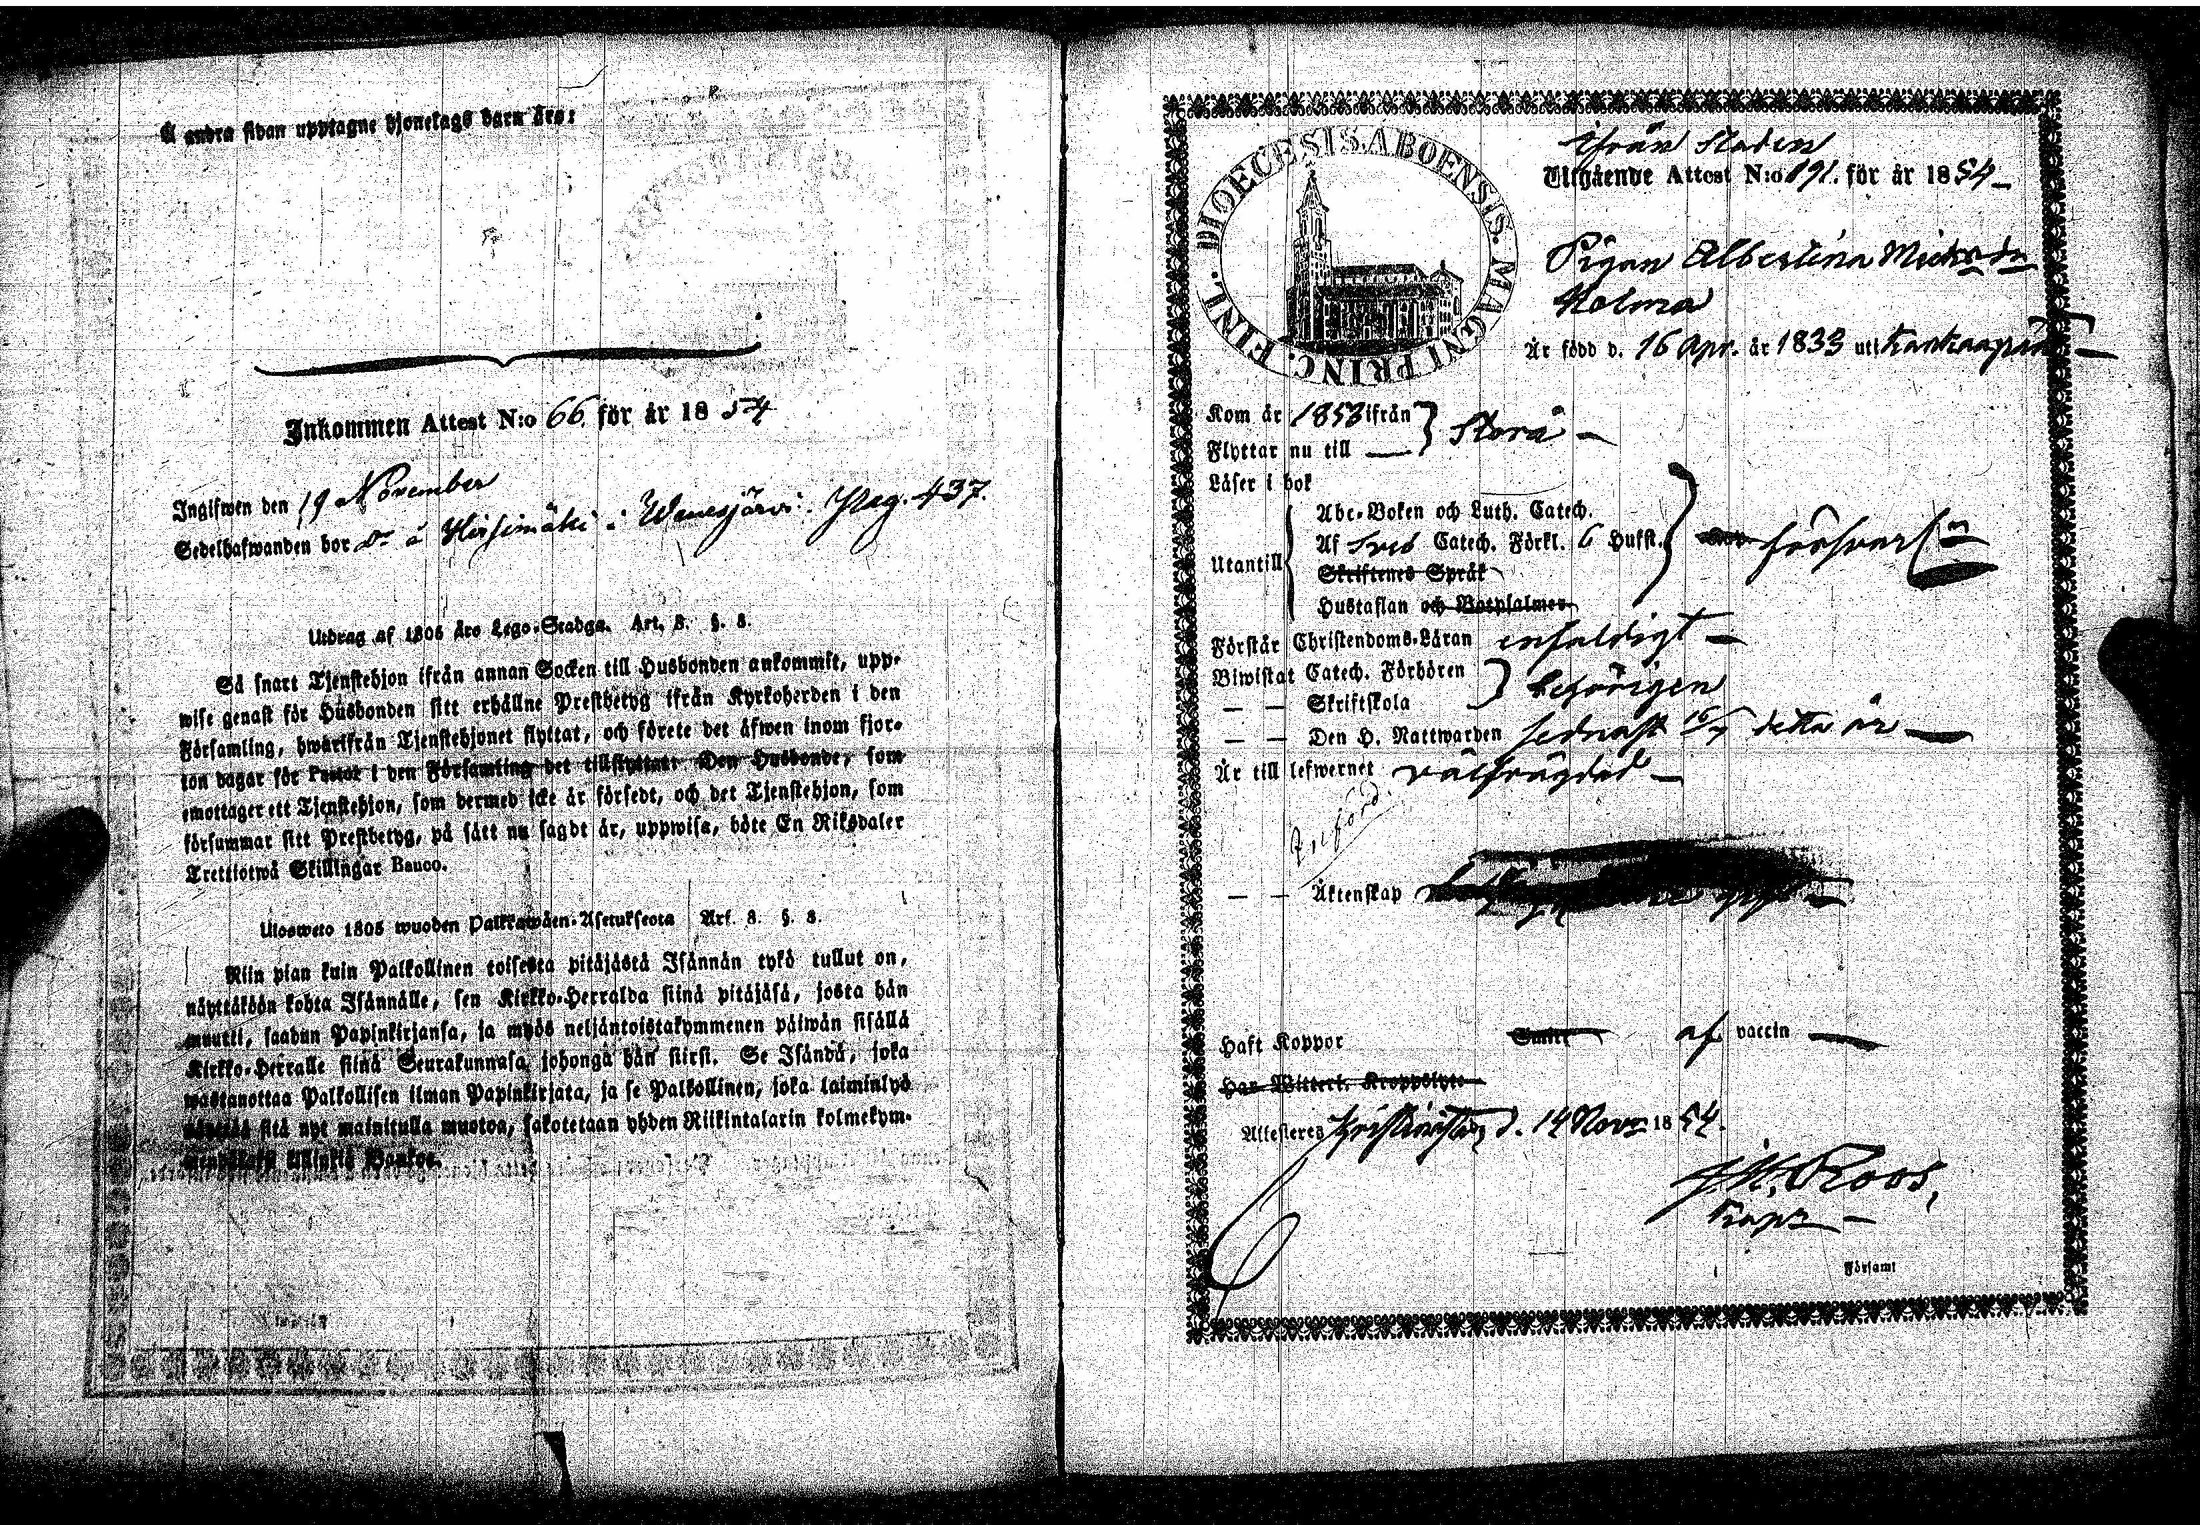 Å andra sidan upptagne hjonelags barn äro:
Inkommen Attest N:o 66. för år 1854
Ingifwen den 19 November
Sedelhafwanden bor å Hirsimäki i Wanesjärvi. Pag. 437.
Utdrag af 1805 års Lego-Stadga. Art. 3. §. 8.
Så snart Tjenstehjon ifrån annan Socken till Husbonden ankommit, upp-
wise genast för Husbonden sitt erhållne Prestbetyg ifrån Kyrkoherden i den
Församling, hwarifrån Tjenstehjonet flyttat, och förete det äfwen inom fjor-
ton dagar för Pastor i den Församling det tillflyttat. Den Husbonde, som
emottager ett Tjenstehjon, som dermed icke är försedt, och det Tjenstehjon, som
försummar sitt Prestbetyg, på sätt nu sagdt är, uppwisa, böte En Riksdaler
Trettiotwå Skillingar Banco.
Ulosweto 1805 wuoden Palkkawäen-Asetuksesta Art. 3. §. 8.
Niin pian kuin Palkollinen toisesta pitäjästä Isännän tykö tullut on,
näyttäköön kohta Isännälle, sen Kirkko-Herralda siinä pitäjäsä, josta hän
muutti, saadun Papinkirjansa, ja myös neljäntoistakymmenen päiwän sisällä
Kirkko-Herralle siinä Seurakunnasa johonga hän siirsi. Se Isändä, joka
wastanottaa Palkollisen ilman Papinkirjata, ja se Palkollinen, joka laiminlyö
näyttää sitä nyt mainitulla muotoa, sakotetaan yhden Riikintalarin kolmekym-
mendäkaxi Killinkiä Bankoa.
DIOECESIS. ABOENSIS. MAGNI PRINC. FINL.
ifrån staden
Utgående Attest N:o 191. för år 1854
Pigan Albertina Micksdr
Holma
Är född d. 16 Apr. år 1833 uti
Kom år 1853 ifrån
Flyttar nu till
Storå
Läser i bok
Abc-Boken och Luth. Catech.
Af Sveb Catech. Förkl. 6 Hufst.
Utantill
försvarl.
Skriftenes Språk
Hustaflan och Botpsalmer
Förstår Christendoms-Läran enfaldigt
Biwistat Catech. Förhören
behörigen
— — Skriftskola
— — Den H. Nattwarden sednast 16/7 detta år
Är till lefwernet välfrägdad
Införd.
— — Äktenskap
Haft Koppor Smitt af vaccin
Har Witterl. Kroppslyte
Attesteras Kristinestad d. 14 Nov. 1854.
J. M. Roos,
Kapn
Församl